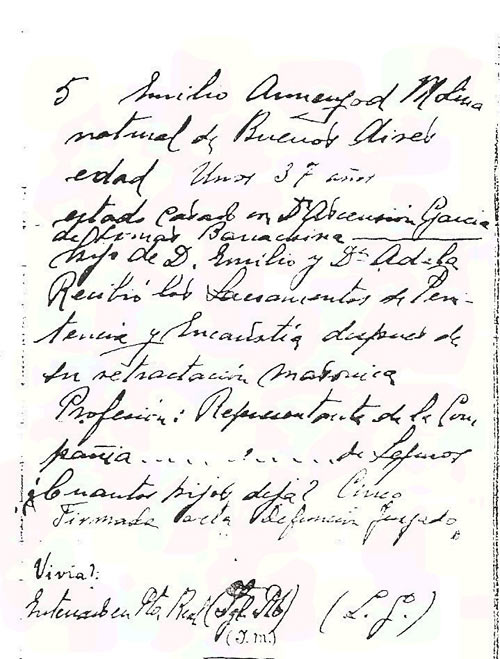 5 Emilio Armengod Molina
natural de Buenos Aires
edad Unos 37 años
estado casado con Dª Ascensión Garcia
de Lomas Barrachina
hijo de D. Emilio y Dª Adela
Recibió los Sacramentos de Peni-
tencia y Eucaristía despues de
su retractación masonica
Profesión: Representante de la Com
pañia . . . . . . . . . de Seguros
¿Cuantos hijos deja? Cinco
Firmada acta Defunción Juzgado
Vivia?:
Enterrado en Pto. Real
(J.M.)